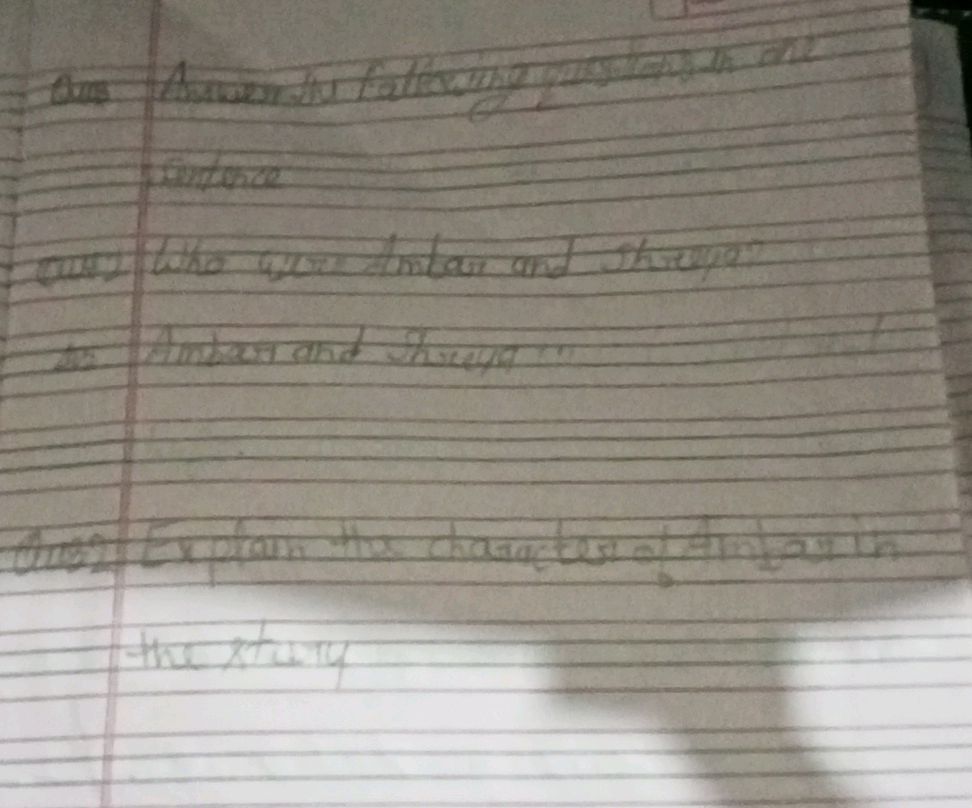 Ques Answer the following questions in one
sentence
Ques) Who were Ambar and Shreya?
Ans Ambar and Shreya ...
Ques2 Explain the character of Ambar in
the story